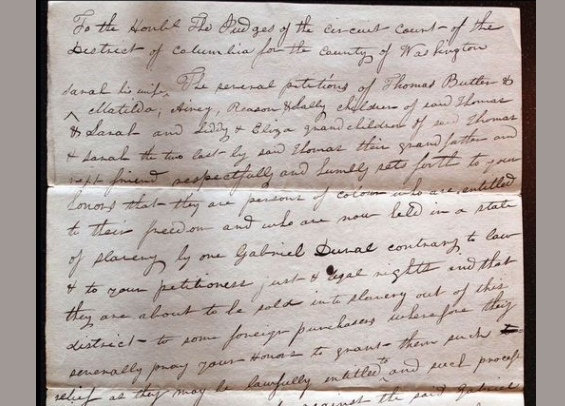 To the Honbl The Judges of the circuit court of the
District of Columbia for the County of Washington
sarah his wife,
The several petitions of Thomas Butler &
Matilda, Airey, Reason & Sally children of said Thomas
& Sarah and Liddy & Eliza grand children of said Thomas
& sarah the two last by said Thomas their grand father and
next friend respectfully and humbly sets forth to your
honors that they are persons of colour who are entitled
to their freedom and who are now held in a state
of slavery by one Gabriel Duval contrary to law
& to your petitioners just & legal rights and that
they are about to be sold into slavery out of this
district to some foreign purchasers wherefore they
severally pray your Honors to grant them such
relief as they may be lawfully entitled to and such process
against the said Gabriel